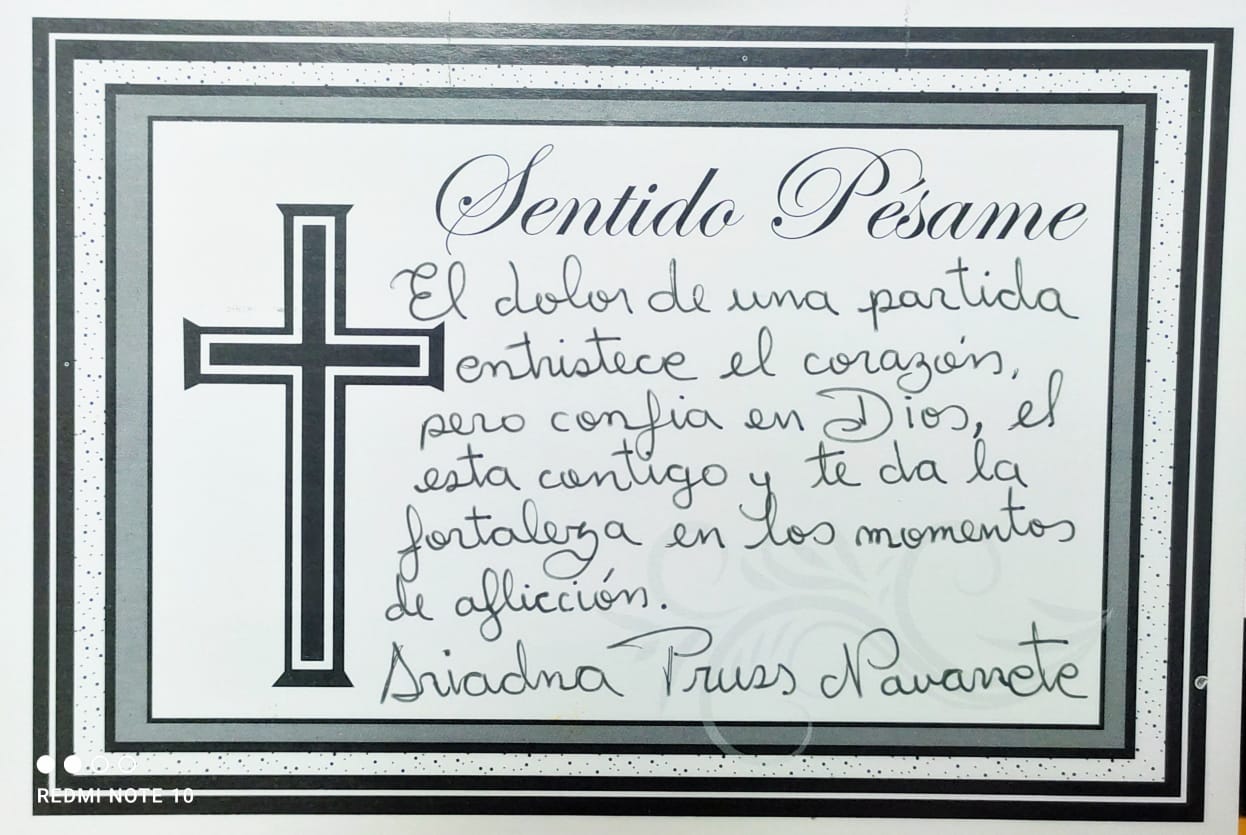 Sentido Pésame
El dolor de una partida
entristece el corazón,
pero confia en Dios, el
esta contigo y te da la
fortaleza en los momentos
de aflicción.
Ariadna Pruss Navarrete
REDMI NOTE 10